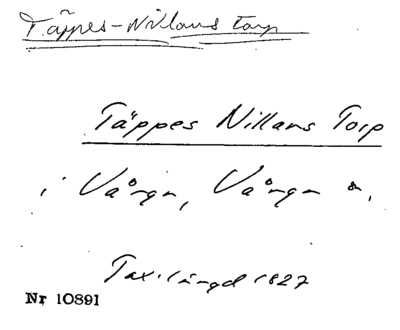 Täppes-Nillans torp
Täppes Nillans Torp
i Vånga, Vånga
Tax.längd 1827
Nr 10891